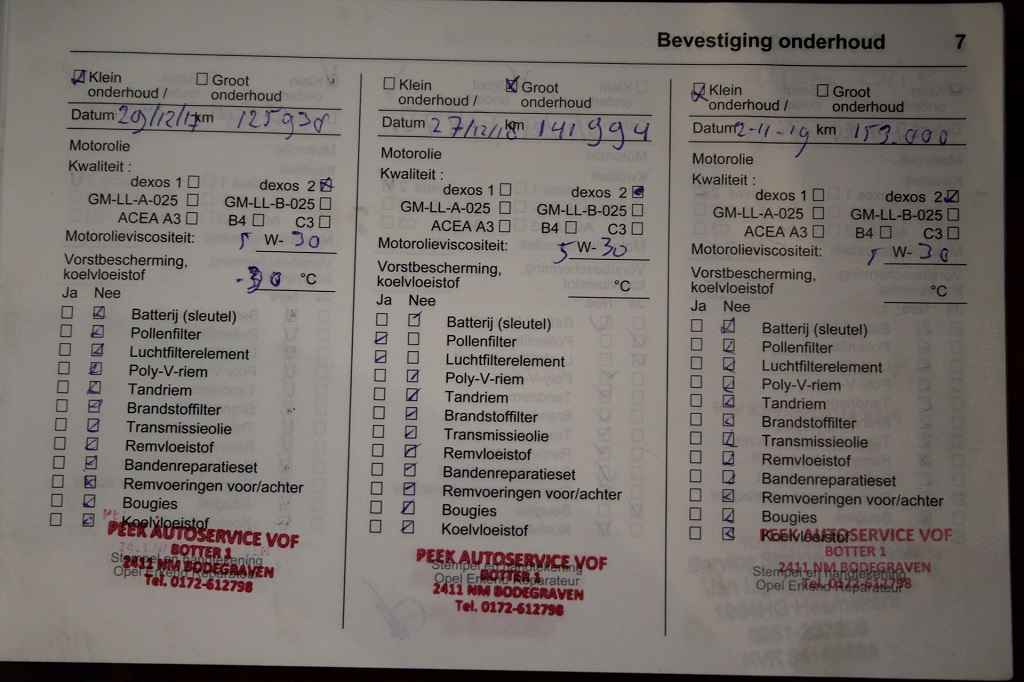 Bevestiging onderhoud 7
☑ Klein onderhoud / ☐ Groot onderhoud
Datum 29/12/17 km 125930
Motorolie
Kwaliteit :
dexos 1 ☐ dexos 2 ☒
GM-LL-A-025 ☐ GM-LL-B-025 ☐
ACEA A3 ☐ B4 ☐ C3 ☐
Motorolieviscositeit: 5 W- 30
Vorstbescherming,
koelvloeistof -30 °C
Ja Nee
☐ ☑ Batterij (sleutel)
☐ ☑ Pollenfilter
☐ ☑ Luchtfilterelement
☐ ☑ Poly-V-riem
☐ ☑ Tandriem
☐ ☑ Brandstoffilter
☐ ☑ Transmissieolie
☐ ☑ Remvloeistof
☐ ☑ Bandenreparatieset
☐ ☑ Remvoeringen voor/achter
☐ ☑ Bougies
☐ ☑ Koelvloeistof
PEEK AUTOSERVICE VOF
BOTTER 1
Stempel en handtekening
2411 NM BODEGRAVEN
Opel Erkend Reparateur
Tel. 0172-612798
☐ Klein onderhoud / ☒ Groot onderhoud
Datum 27/12/18 km 141994
Motorolie
Kwaliteit :
dexos 1 ☐ dexos 2 ☑
GM-LL-A-025 ☐ GM-LL-B-025 ☐
ACEA A3 ☐ B4 ☐ C3 ☐
Motorolieviscositeit: 5 W- 30
Vorstbescherming,
koelvloeistof °C
Ja Nee
☐ ☑ Batterij (sleutel)
☑ ☐ Pollenfilter
☑ ☐ Luchtfilterelement
☐ ☑ Poly-V-riem
☐ ☑ Tandriem
☐ ☑ Brandstoffilter
☐ ☑ Transmissieolie
☐ ☑ Remvloeistof
☐ ☑ Bandenreparatieset
☐ ☑ Remvoeringen voor/achter
☐ ☑ Bougies
☐ ☑ Koelvloeistof
PEEK AUTOSERVICE VOF
Stempel en handtekening
BOTTER 1
Opel Erkend Reparateur
2411 NM BODEGRAVEN
Tel. 0172-612798
☑ Klein onderhoud / ☐ Groot onderhoud
Datum 2-11-19 km 153.000
Motorolie
Kwaliteit :
dexos 1 ☐ dexos 2 ☑
GM-LL-A-025 ☐ GM-LL-B-025 ☐
ACEA A3 ☐ B4 ☐ C3 ☐
Motorolieviscositeit: 5 W- 30
Vorstbescherming,
koelvloeistof °C
Ja Nee
☐ ☑ Batterij (sleutel)
☐ ☑ Pollenfilter
☐ ☑ Luchtfilterelement
☐ ☑ Poly-V-riem
☐ ☑ Tandriem
☐ ☑ Brandstoffilter
☐ ☑ Transmissieolie
☐ ☑ Remvloeistof
☐ ☑ Bandenreparatieset
☐ ☑ Remvoeringen voor/achter
☐ ☑ Bougies
☐ ☑ Koelvloeistof
PEEK AUTOSERVICE VOF
BOTTER 1
2411 NM BODEGRAVEN
Stempel en handtekening
Tel. 0172-612798
Opel Erkend Reparateur